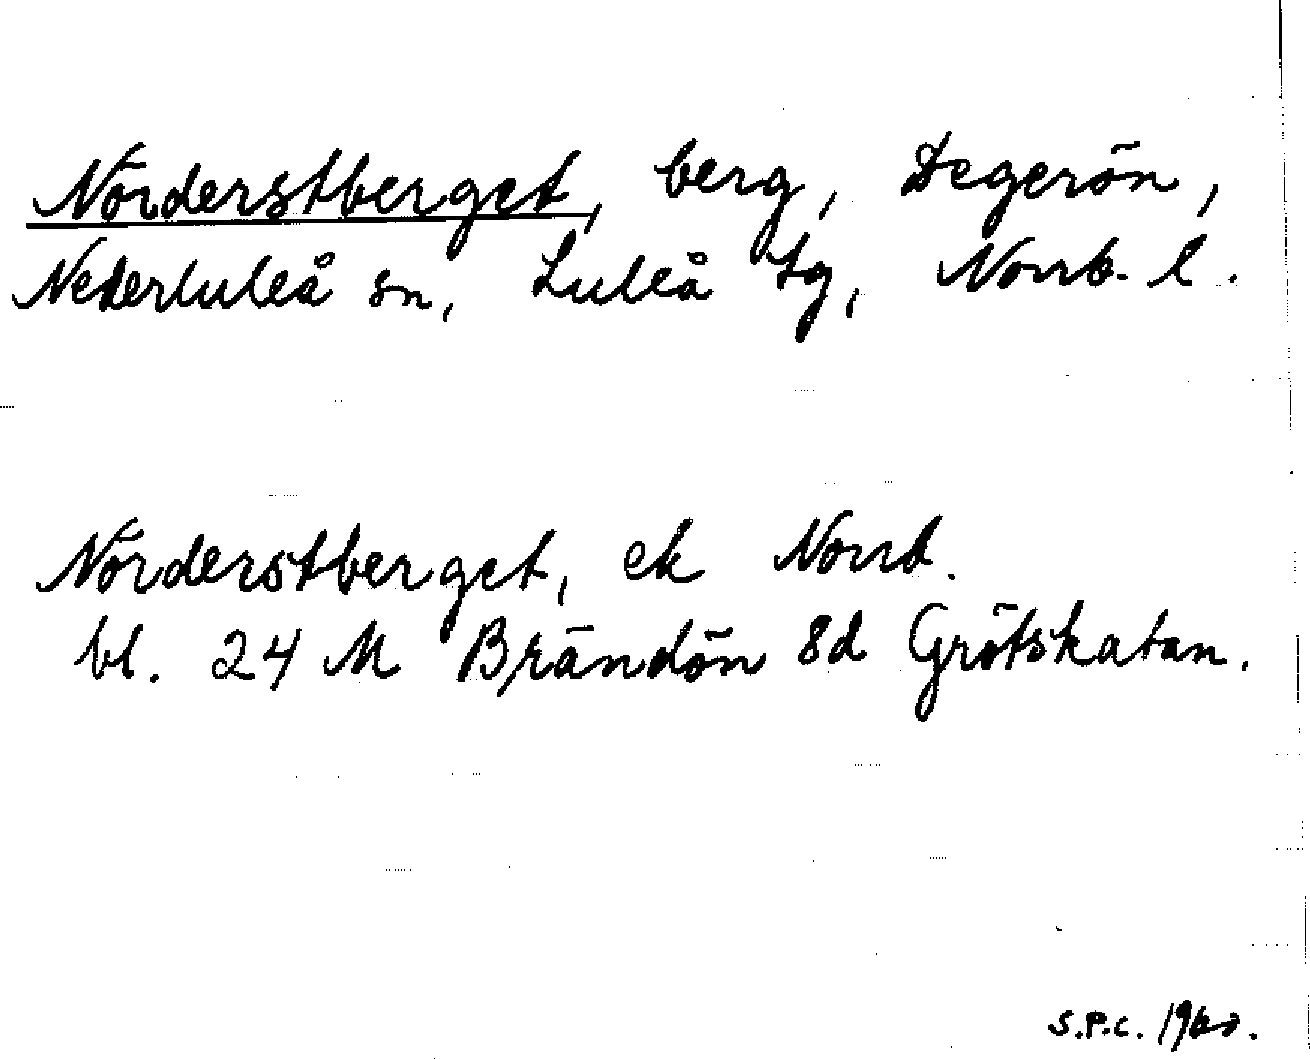 Nörderstberget, berg, Degerön,
Nederluleå sn, Luleå tg, Norrb. l.
Nörderstberget, ek Norrb.
bl. 24 M Brändön 8d Grötskatan.
S.P.C. 1960.